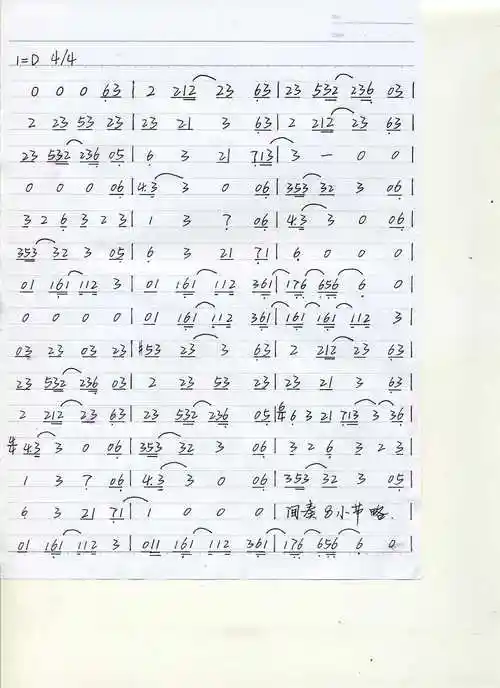 1=D 4/4
0 0 0 63 | 2 212 23 63 | 23 532 236 03 |
2 23 53 23 | 23 21 3 63 | 2 212 23 63 |
23 532 236 05 | 6 3 21 713 | 3 — 0 0 |
0 0 0 06 | 43 3 0 06 | 353 32 3 06 |
3 2 6 3 2 3 | 1 3 7 06 | 43 3 0 06 |
353 32 3 05 | 6 3 21 71 | 6 0 0 0 |
01 161 112 3 | 01 161 112 361 | 176 656 6 0 |
0 0 0 0 | 01 161 112 361 | 161 161 112 3 |
03 23 03 23 | #53 23 3 63 | 2 212 23 63 |
23 532 236 03 | 2 23 53 23 | 23 21 3 63 |
2 212 23 63 | 23 532 236 05 | 6/4 6 3 21 713 3 36 |
4/4 43 3 0 06 | 353 32 3 06 | 3 2 6 3 2 3 |
1 3 7 06 | 43 3 0 06 | 353 32 3 05 |
6 3 21 71 | 1 0 0 0 | 间奏8小节略.
01 161 112 3 | 011 161 112 361 | 176 656 6 0 |